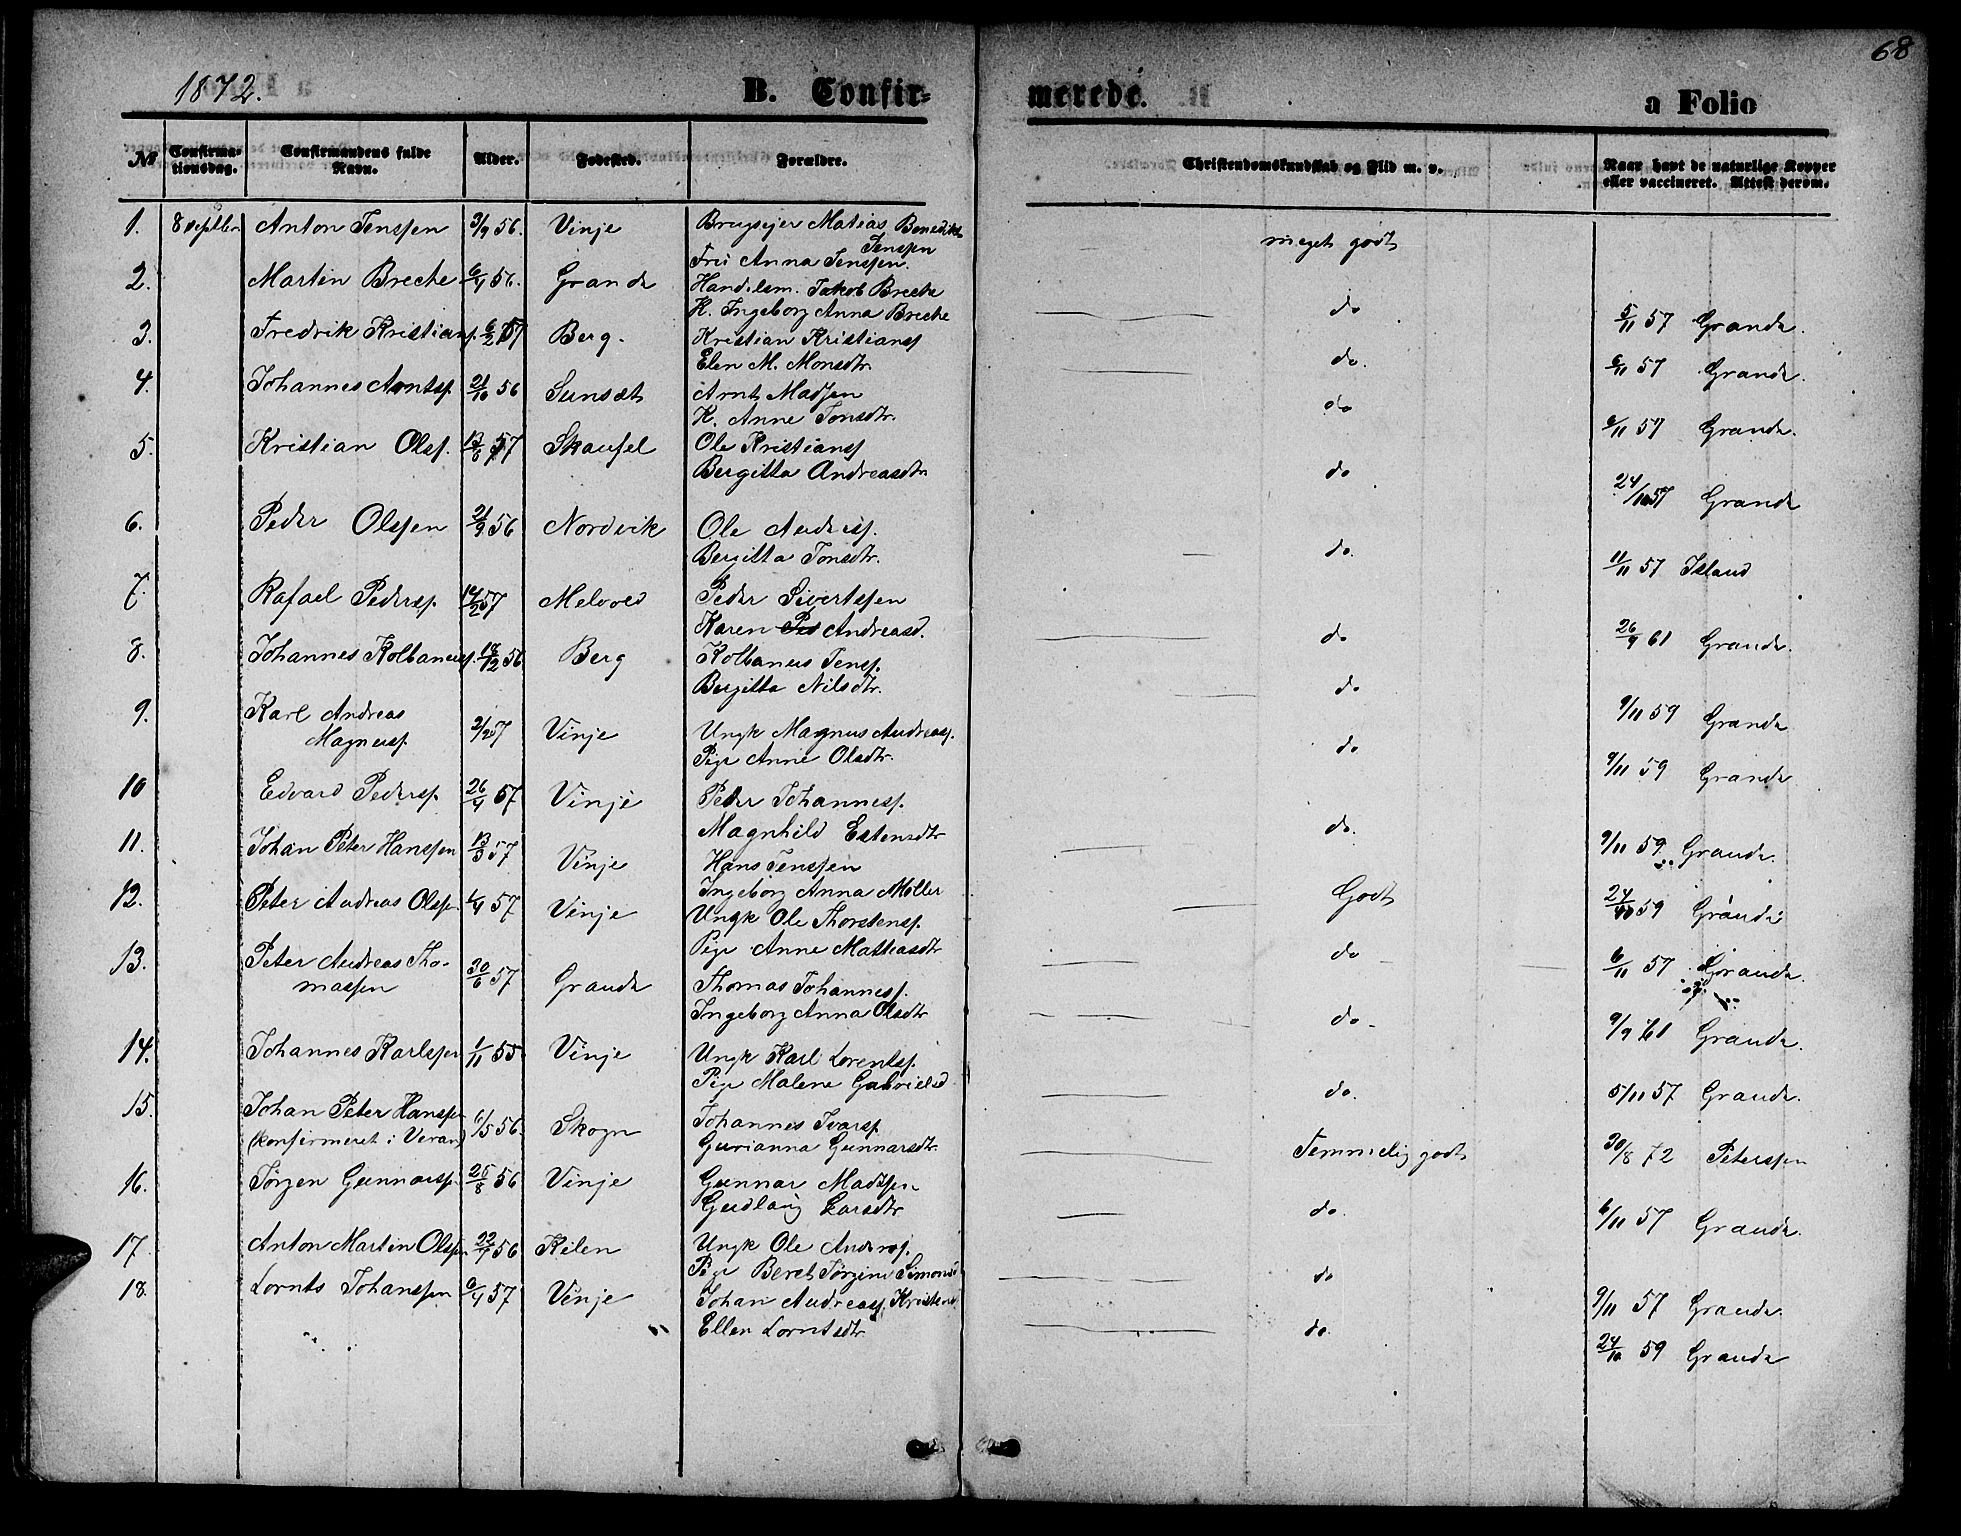 68
1872.
B. Confir=
merede.
a Folio
№
Confirma-
tionsdag.
Confirmandens fulde
Navn.
Alder.
Fødested.
Forældre.
Christendomskundskab og Flid m. v.
Naar havt de naturlige Kopper
eller vaccineret. Attest derom.
1. 8 Septbr Anton Jenssen 3/9 56. Vinje Brugsejer Matias Benedikt
Jenssen
Fru Anna Jenssen.
meget godt
2. Martin Breche 6/4 56. Grande Handelsm. Jakob Breche
K. Ingeborg Anna Breche
do 5/11 57 Grande.
3. Fredrik Kristiansp. 6/2 57 Berg. Kristian Kristiansp
Elen M. Monsdtr.
do. 6/11 57 Grande.
4. Johannes Arntsp. 21/10 56 Sunset Arnt Madsen
K. Anne Jonsdtr.
do 6/11 57 Grande.
5. Kristian Olsp. 13/8 57 Skaufel Ole Kristiansp
Bergitta Andreasdtr
do 24/10 57 Grande
6. Peder Olssen 21/9 56 Nordvik Ole Andersp.
Bergitta Jonsdtr.
do. 11/11 57 Island
7. Rafael Pedersp. 14/2 57 Melvold Peder Sivertssen
Karen Andreasd.
do 26/9 61 Grande.
8. Johannes Kolbanussp. 18/12 56 Berg Kolbanus Jensp.
Bergitta Nilsdtr.
do 9/11 59 Grande
9. Karl Andreas
Magnussp. 2/2 57 Vinje Ungk Magnus Andreasp.
Pige Anne Olsdtr.
do 9/11 59 Grande
10 Edvard Pedersp. 26/4 57 Vinje Peder Johannesp.
Magnhild Estensdtr
do. 9/11 59 Grande.
11. Johan Peter Hanssen 13/3 57 Vinje Hans Jenssen
Ingeborg Anna Møller
Godt 24/10 59 Grande
12. Peter Andreas Olsp. 6/4 57 Vinje Ungk Ole Thorstensp.
Pige Anne Mathiasdtr
do 6/11 57 Grande.
13. Peter Andreas Tho-
massen 30/6 57 Grande Thomas Johannesp.
Ingeborg Anna Olsdtr
do. 9/9 61 Grande.
14. Johannes Karlssen 1/11 55 Vinje Ungk Karl Lorentsp.
Pige Malene Gabrielsd
do. 5/11 57 Grande.
15. Johan Peter Hanssen
(konfirmeret i Veran) 6/5 56. Skogn Johannes Ivarsp
Gurianna Gunnarsdtr.
Temmelig godt 30/8 72 Peterssen
16. Jørgen Gunnarsp. 25/8 56 Vinje Gunnar Madssen
Gudlaug Larsdtr
do. 6/11 57 Grande.
17. Anton Martin Olssen. 22/7 56 Kilen Ungk Ole Andersp.
Pige Beret Jørgine Simonsd
do 9/11 57 Grande.
18. Lornts Johanssen 6/4 57 Vinje Johan Andreasp. Kristens
Ellen Lorntsdtr
do. 24/10 59 Grande